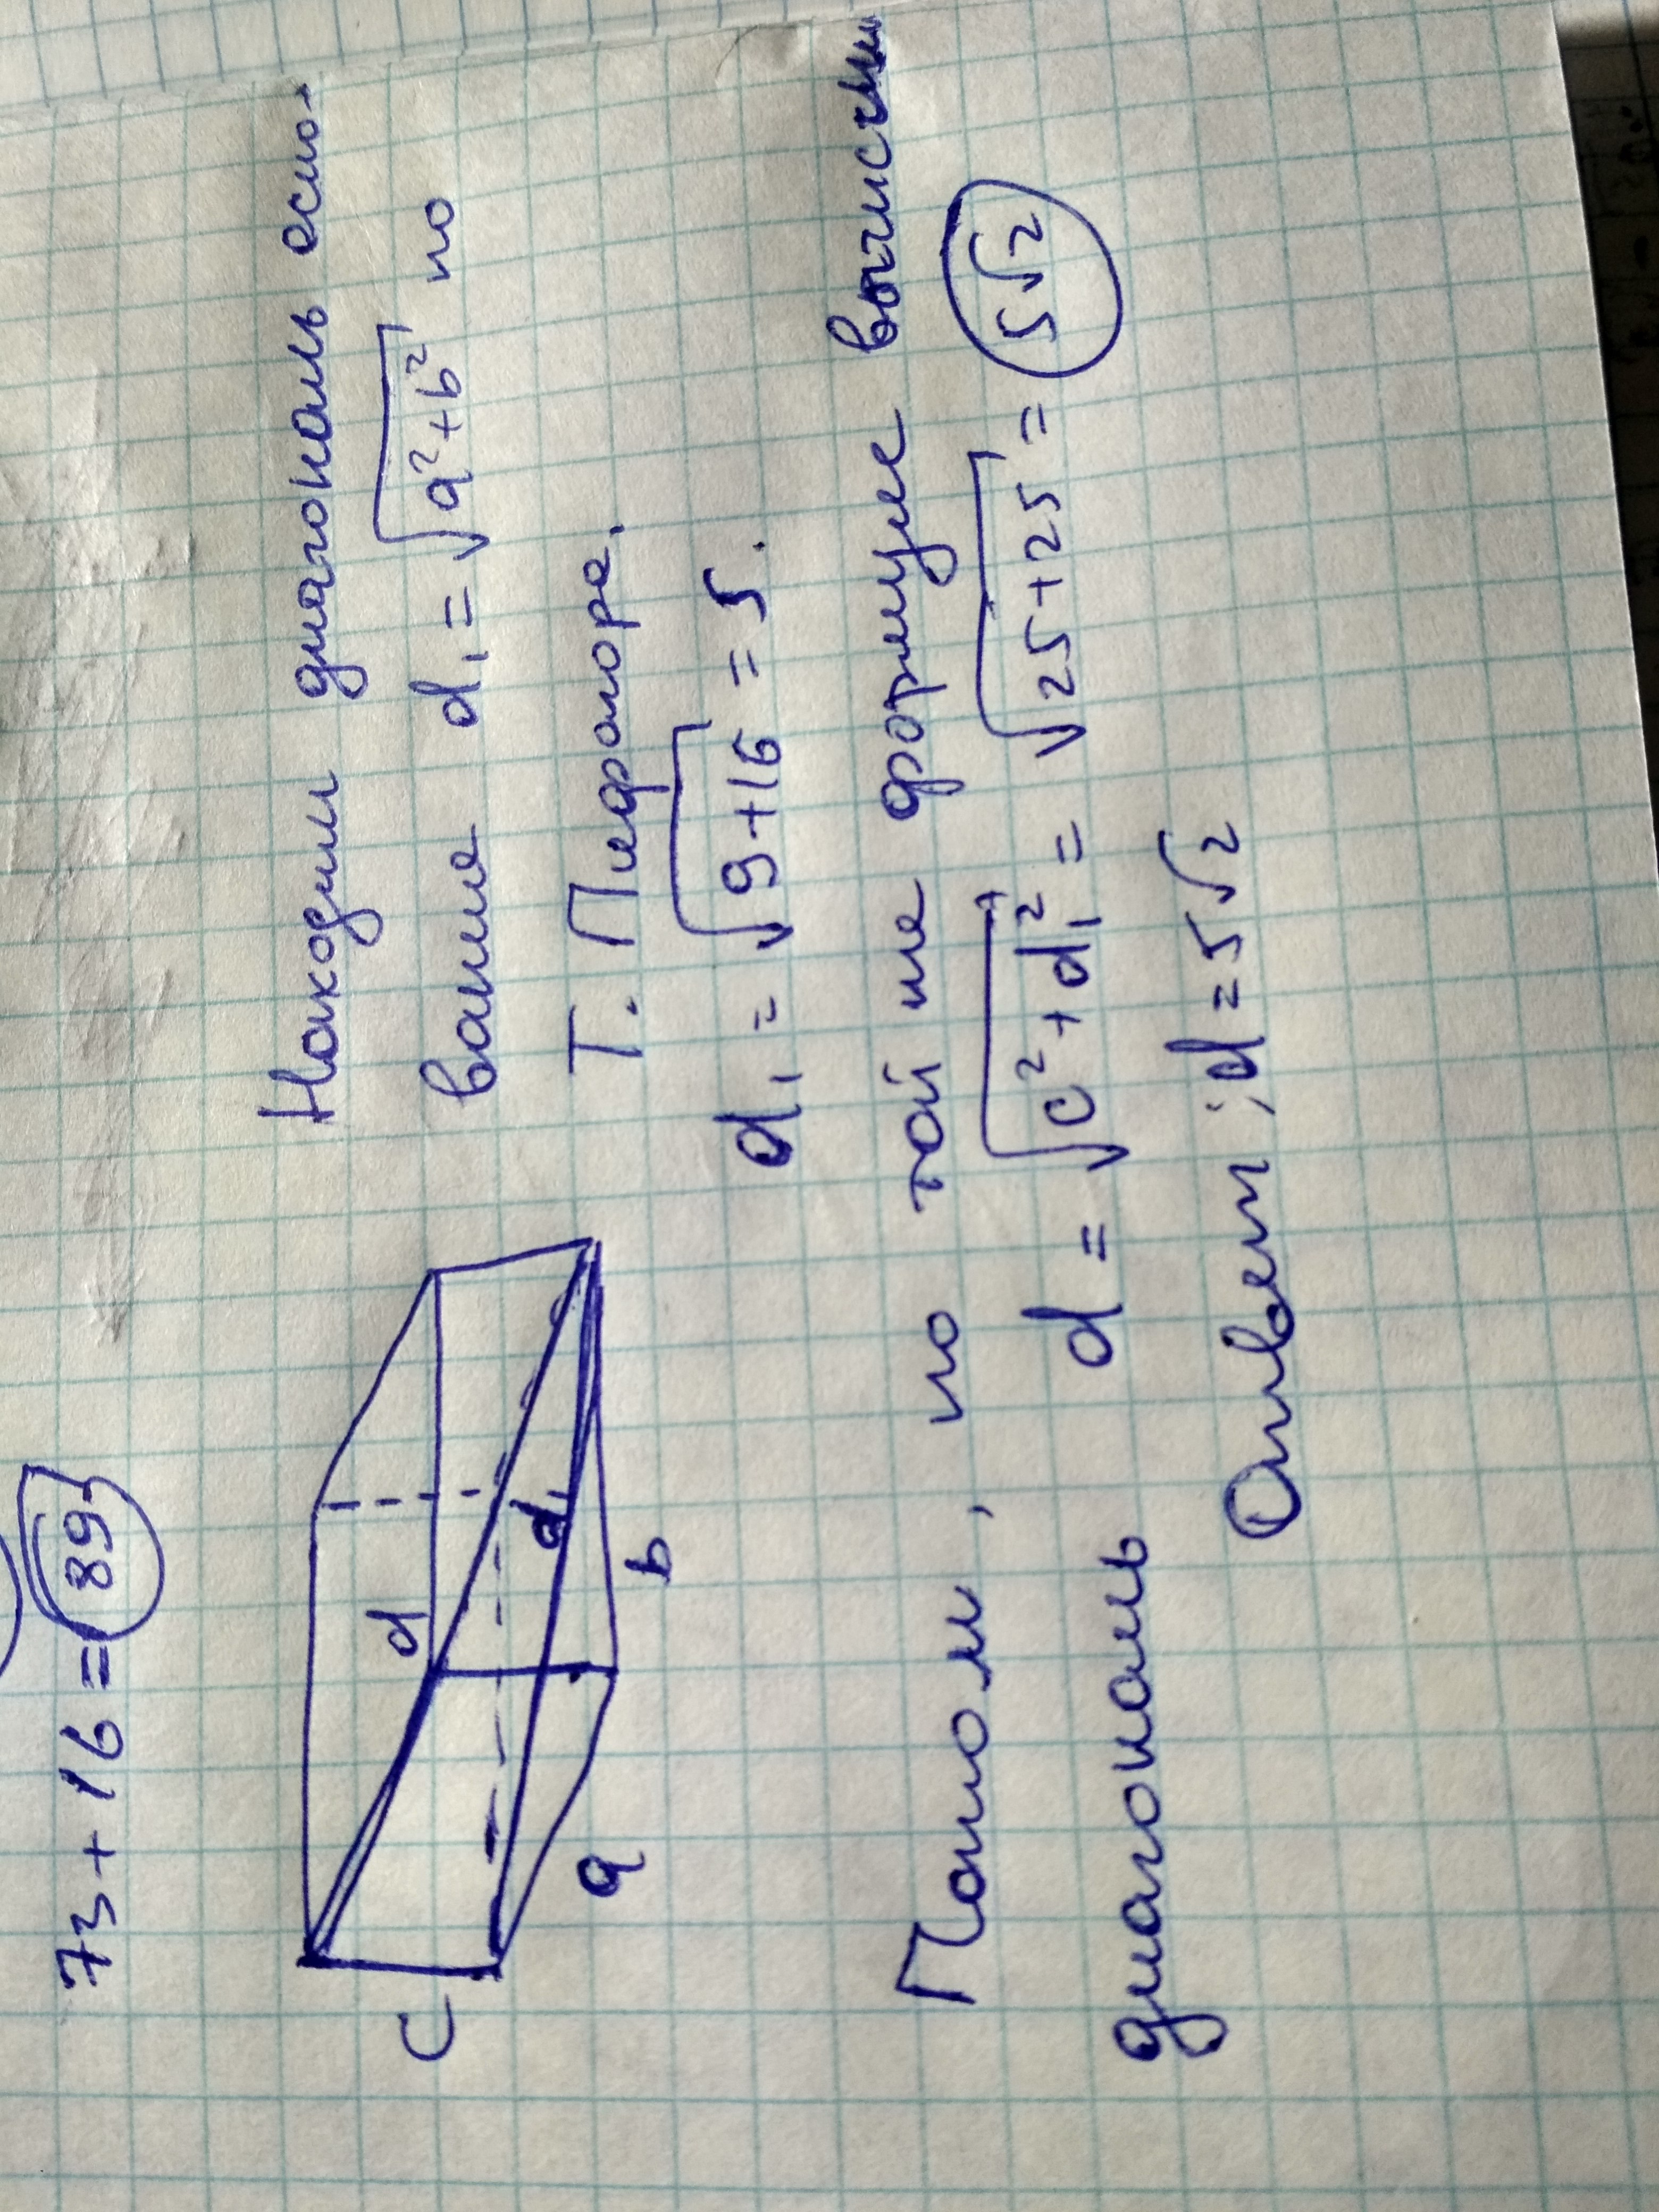 73 + 16 = 89
c
d
d₁
a
b
Находим диагональ осно-
вание d₁ = √(a² + b²) по
Т. Пифагора.
d₁ = √(9 + 16) = 5.
Потом, по той же формуле вычисли
диагональ d = √(c² + d₁²) = √(25 + 25) = 5√2
Ответ: d = 5√2